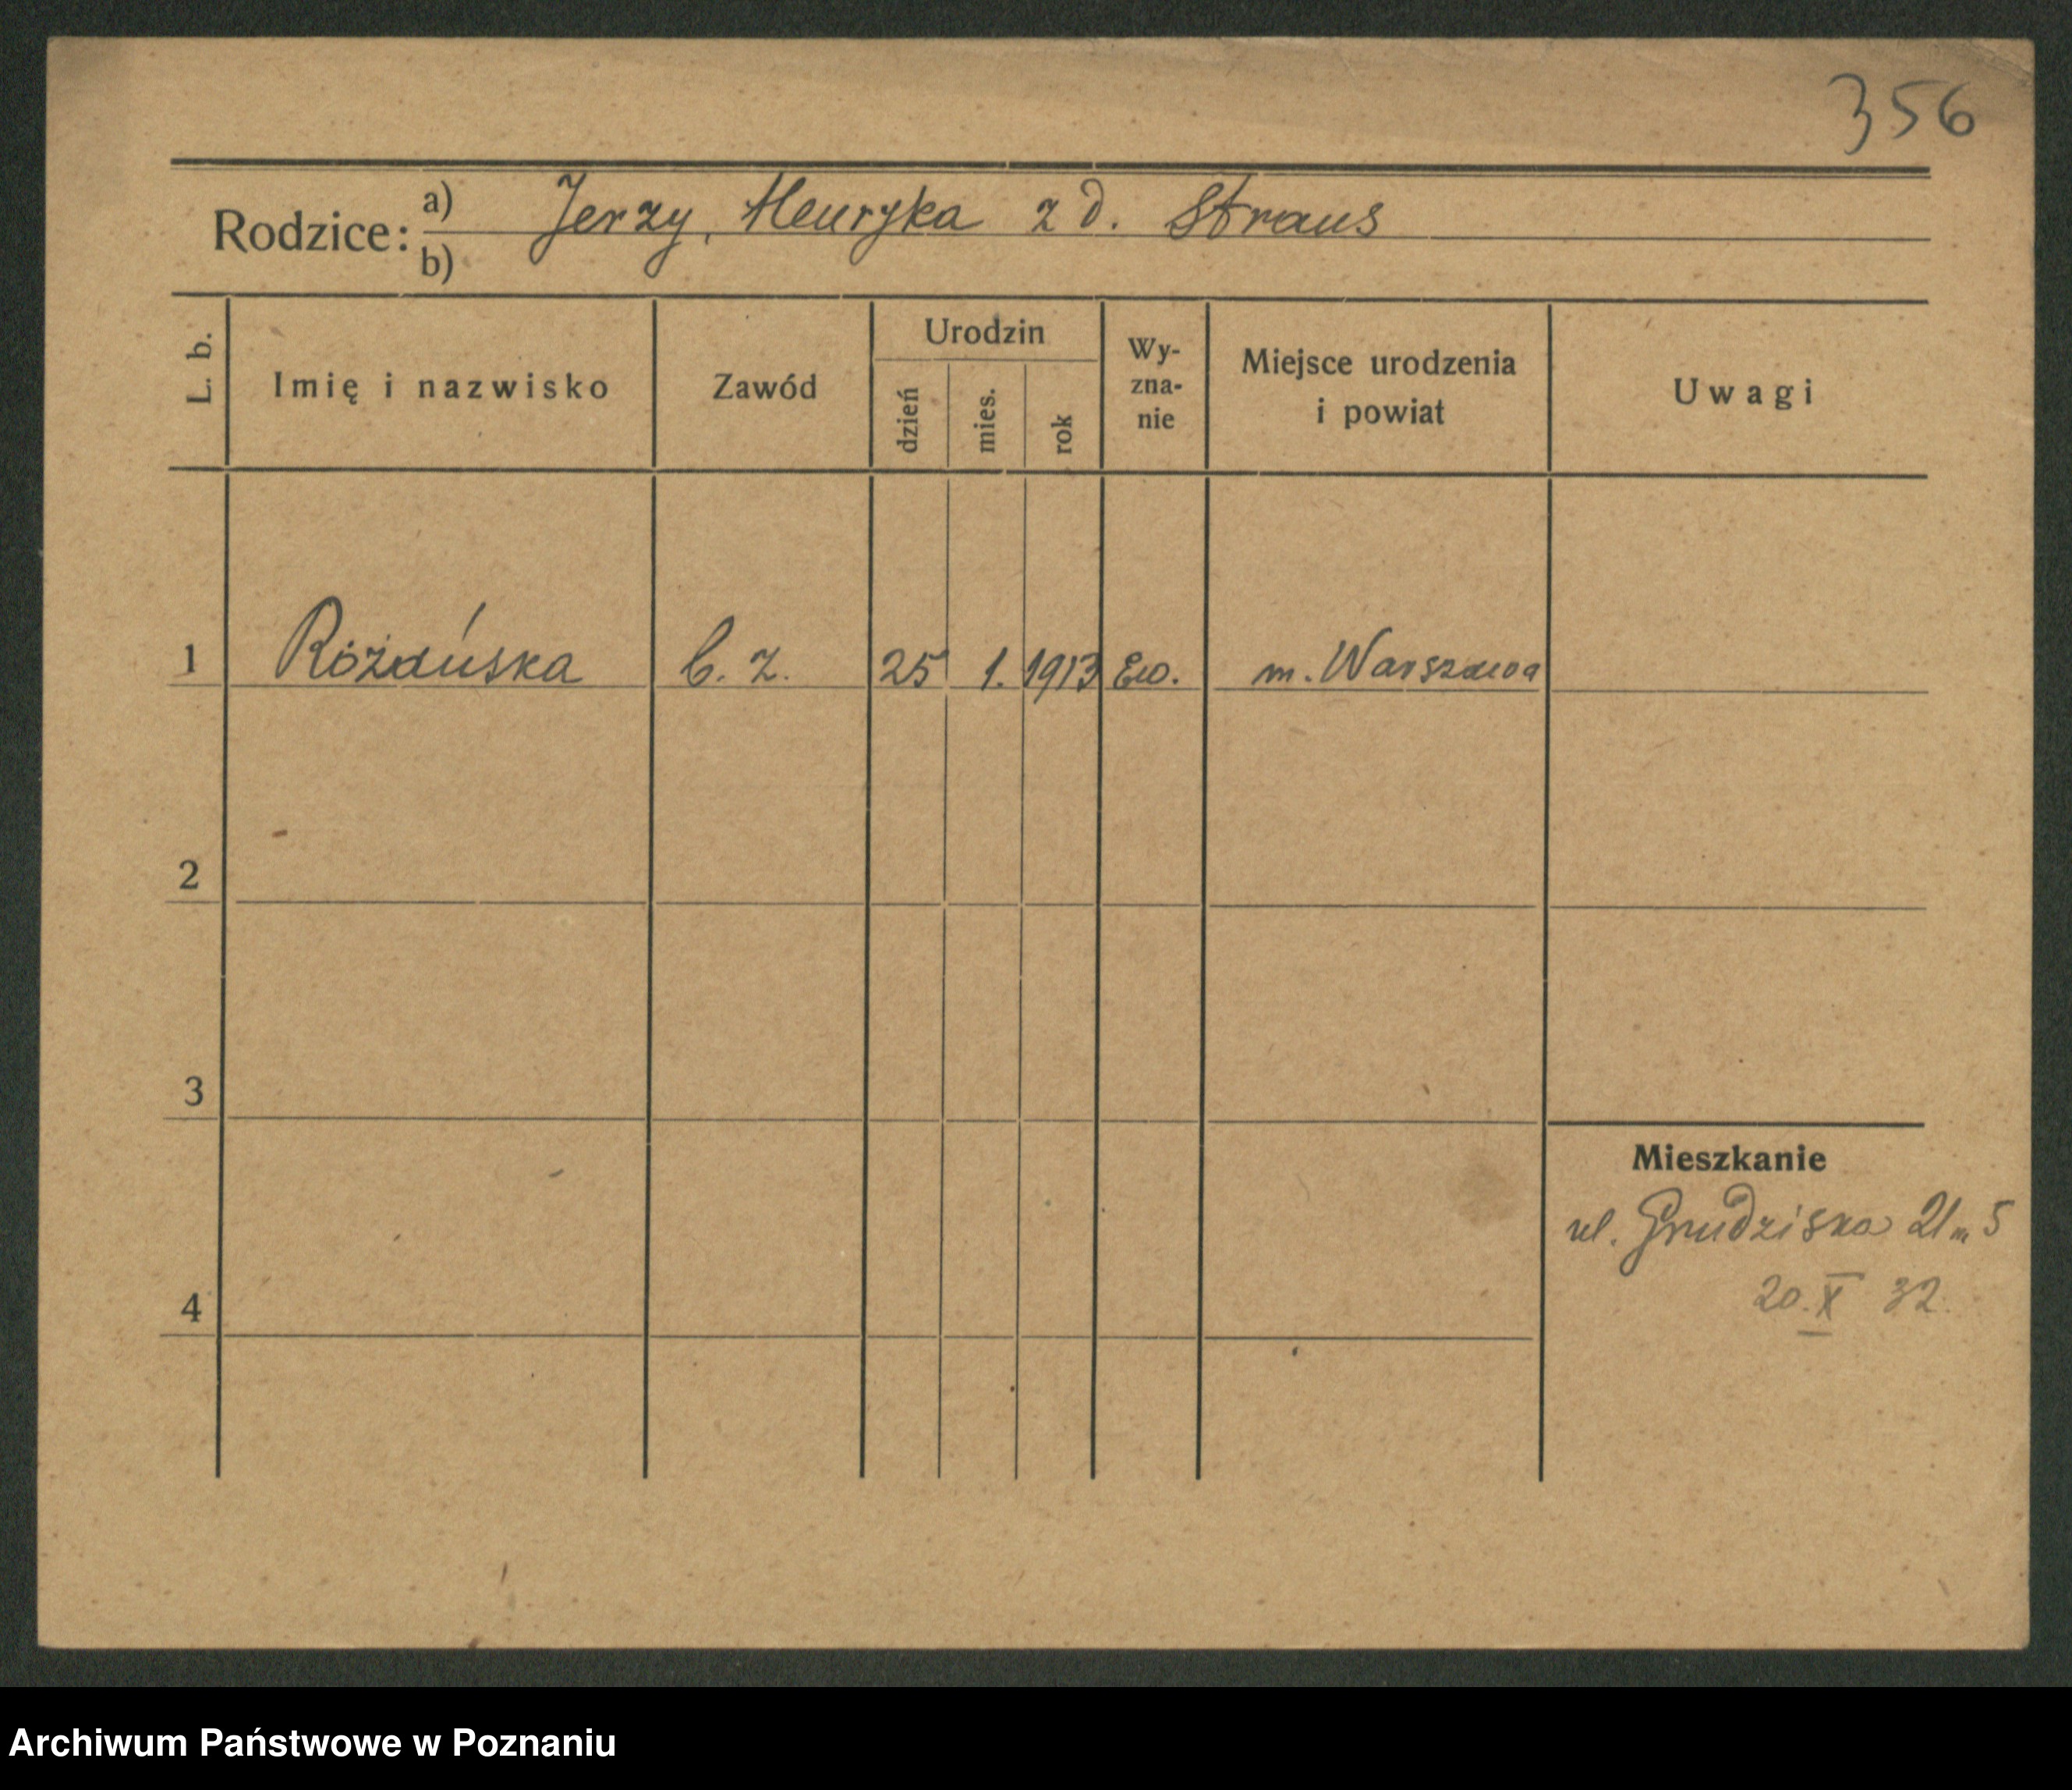 356
Rodzice: a) Jerzy, Henryka z d. Straus
b)
L. b. Imię i nazwisko Zawód Urodzin dzień mies. rok Wy-zna-nie Miejsce urodzenia i powiat Uwagi
1 Różańska b. z. 25 1. 1913 Ew. m. Warszawa
2
3
Mieszkanie
ul. Grudziska 21 m 5
20. X 32.
4
Archiwum Państwowe w Poznaniu